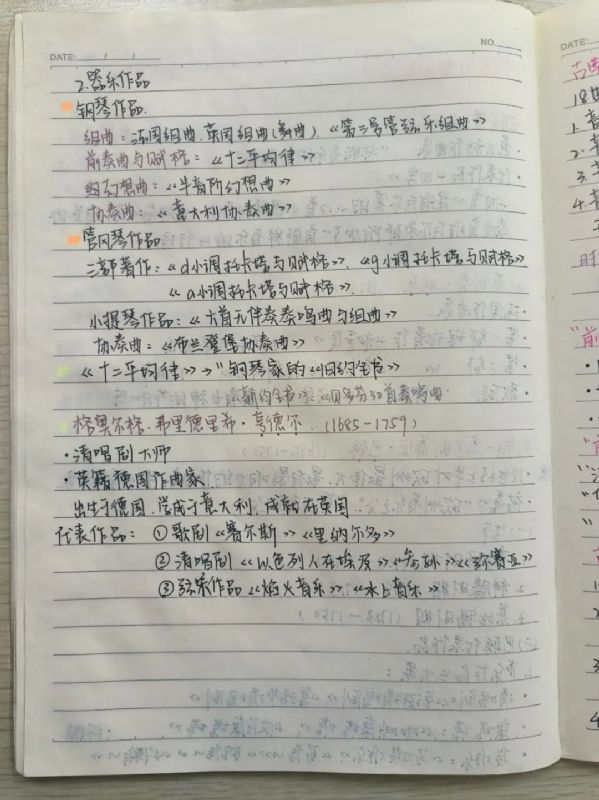 NO.
DATE: / /
DATE:
2.器乐作品
钢琴作品.
组曲：法国组曲.英国组曲(舞曲).《第三号管弦乐组曲》
前奏曲与赋格：《十二平均律》
幻想曲：《半音阶幻想曲》
协奏曲：《意大利协奏曲》
管风琴作品
三部著作：《d小调托卡塔与赋格》.《g小调托卡塔与赋格》
《a小调托卡塔与赋格》.
小提琴作品：《六首无伴奏奏鸣曲与组曲》
协奏曲：《布兰登堡协奏曲》
《十二平均律》→"钢琴家的《旧约全书》
《新约全书》《贝多芬32首奏鸣曲.
格奥尔格.弗里德里希·亨德尔.(1685-1759)
·清唱剧大师
·英籍德国作曲家
出生于德国.学成于意大利.成就在英国.
代表作品：①歌剧《赛尔斯》《里纳尔多》
②清唱剧《以色列人在埃及》《参孙》《弥赛亚》
③弦乐作品《焰火音乐》.《水上音乐》
18世
1.
2.
3.
4.